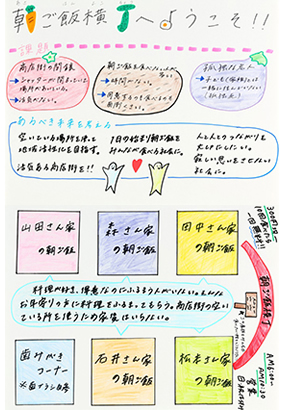 朝ご飯横丁へようこそ!!
課題
商店街の問題
→シャッターが閉まっている
場所があいている。
→活気がない。
朝ご飯を食べない人が
多い
→時間がない。
孤独な老人
あるべき未来を考える
空いている場所を使って
地域活性化を目指す。
活気ある商店街を!!
1日の始まり朝ご飯を
みんなが食べる社会に。
人と人とのつながりを
大切にしたい。
寂しい思いをさせない
社会に。
山田さん家
の朝ご飯
森さん家
の朝ご飯
田中さん家
の朝ご飯
料理が好き、得意なのにふるまう人がいない。そんな
お年寄り方に料理をふるまってもらう。商店街の空い
ている所を使うため家賃はいらない。
歯みがき
コーナー
※歯ブラシ自参
石井さん家
の朝ご飯
松本さん家
の朝ご飯
300円/1食
10回食べたら
一回無料!!
朝ご飯横丁
AM6:00~
AM10:30
営業